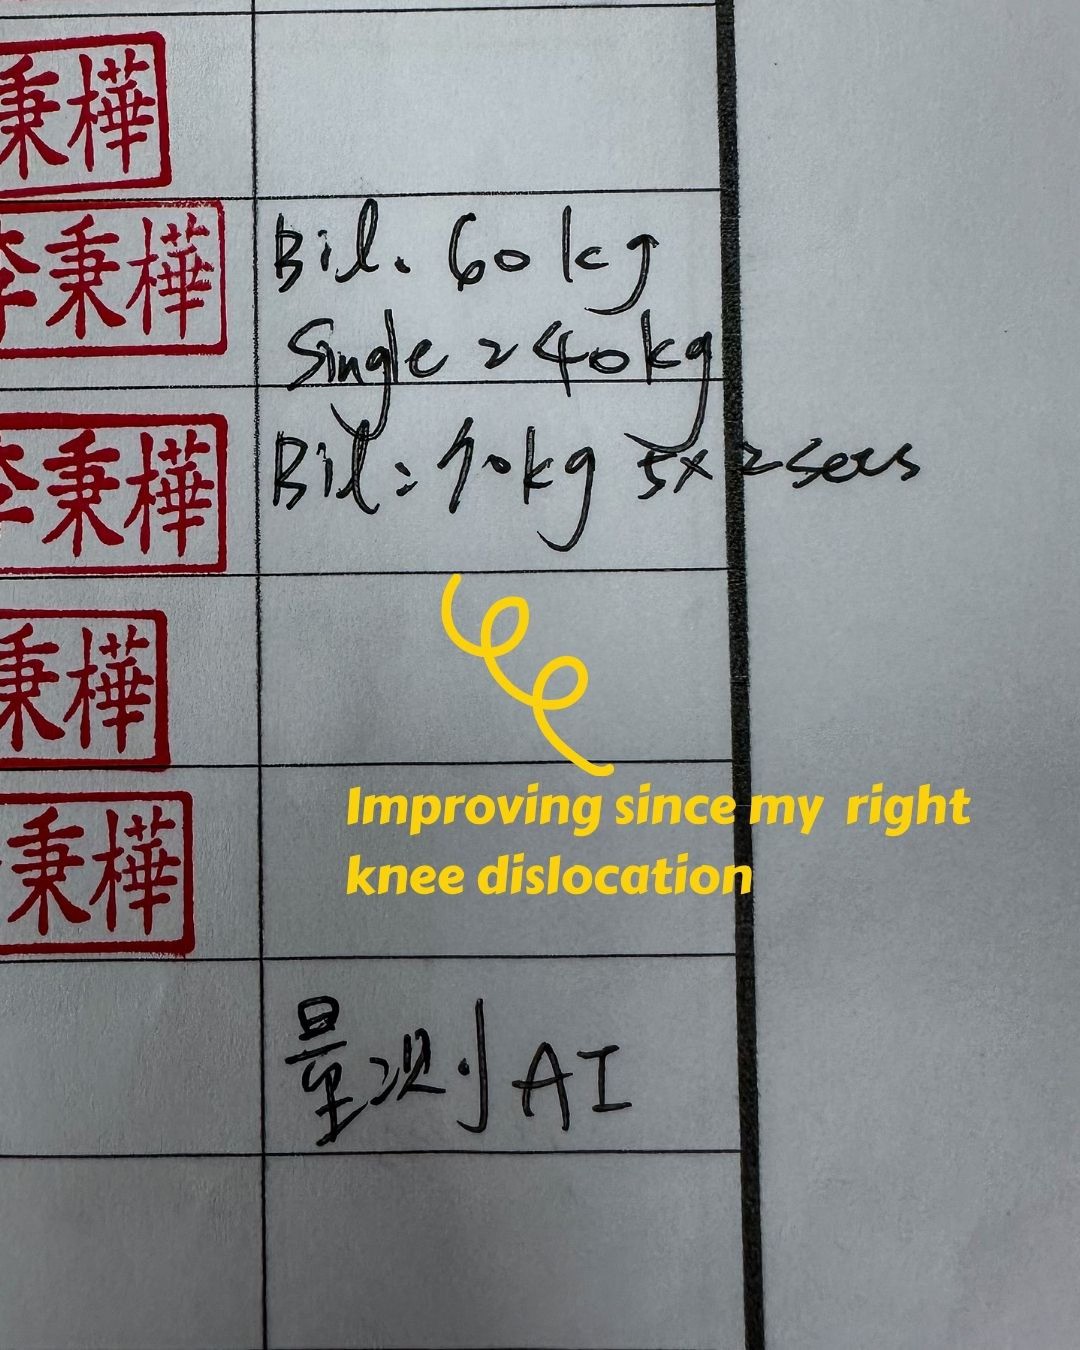 秉樺
李秉樺
Bil. 60kg
Single = 40kg
李秉樺
Bil: 70kg 5x2
秉樺
Improving since my right
knee dislocation
秉樺
量測 AI